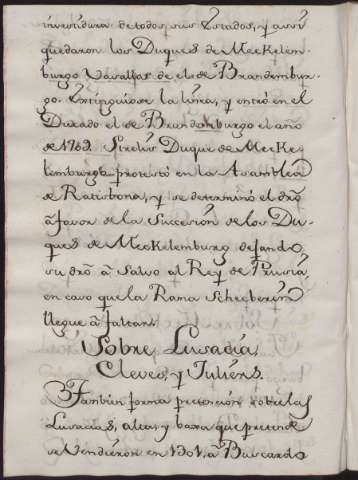 investidura de todos sus Estados, y assi
quedaron los Duques de Meckelem-
burgo Vasallos de el de Brandembur-
go. Extinguiose la linea, y entró en el
Ducado el de Brandenburgo el año
de 1769. Strelis Duque de Mecke
lemburgo protestó en la Asamblea
de Ratisbona, y se determinó el dr̃o
á favor de la Succesion de los Du-
ques de Meckelemburg dejando
su dr̃o á salvo al Rey de Prusia,
en caso que la Rama
llegue á faltar.
Sobre, Lusacia,
Cleves, y Juliérs.
Tambien forma pretension sobre las
Lusacias, alta, y baxa que pretende
se vendieron en 1301, á Buscardo